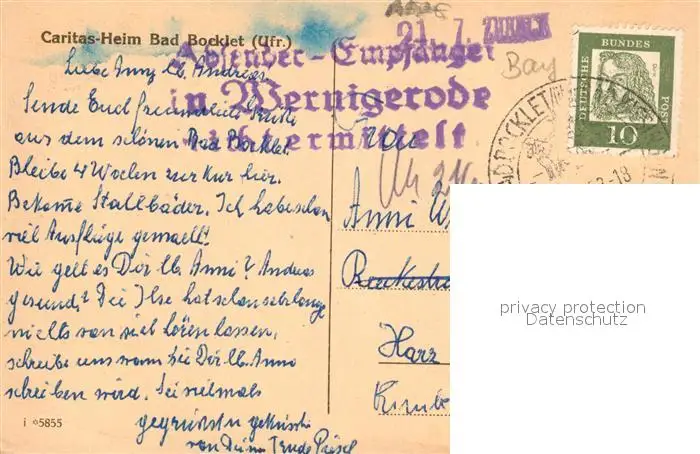 Caritas-Heim Bad Bocklet (Ufr.)
21. 7. ZURÜCK
Absender-Empfänger
in Wernigerode
nicht ermittelt
Bay
DEUTSCHE BUNDESPOST
10
BAD BOCKLET
-18
Liebe Anny lb. Andreas.
Sende Euch freundliche Grüße
aus dem schönen Bad Bocklet.
Bleibe 4 Wochen zur Kur hier.
Bekomme Stahlbäder. Ich habe schon
viel Ausflüge gemacht!
Wie geht es Dir lb. Anni? Andreas
gesund? Die Ilse hat schon sehr lange
nichts von sich hören lassen,
schreibe uns wann sie Dir lb. Anni
schreiben wird. Sei vielmals
gegrüßt u geküßt
von Deine Trude
i 05855
Frau
Anni W
Harz
privacy protection
Datenschutz